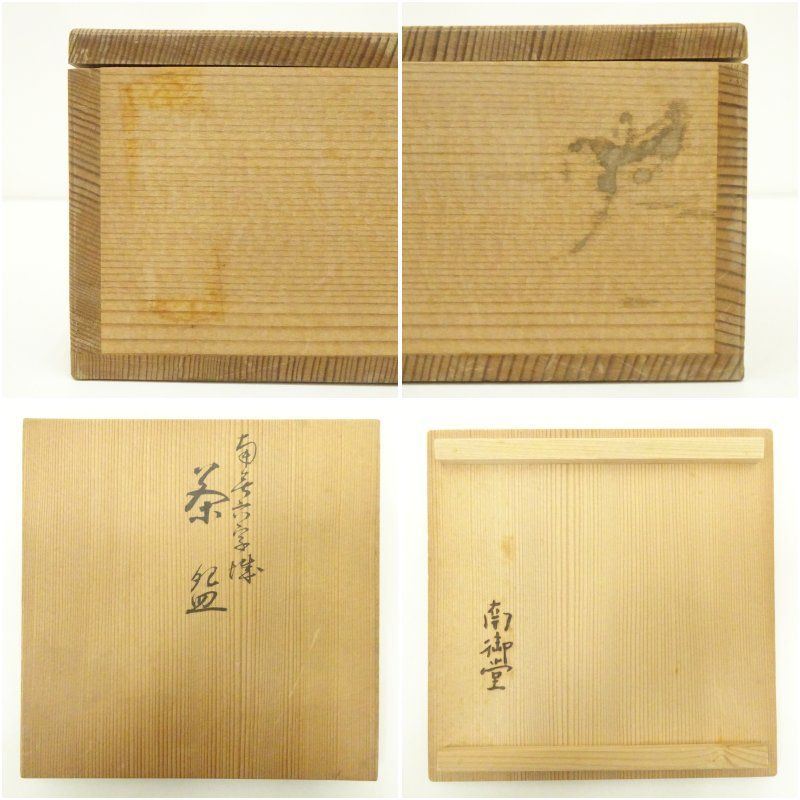 南無六字城
茶盌
南御堂